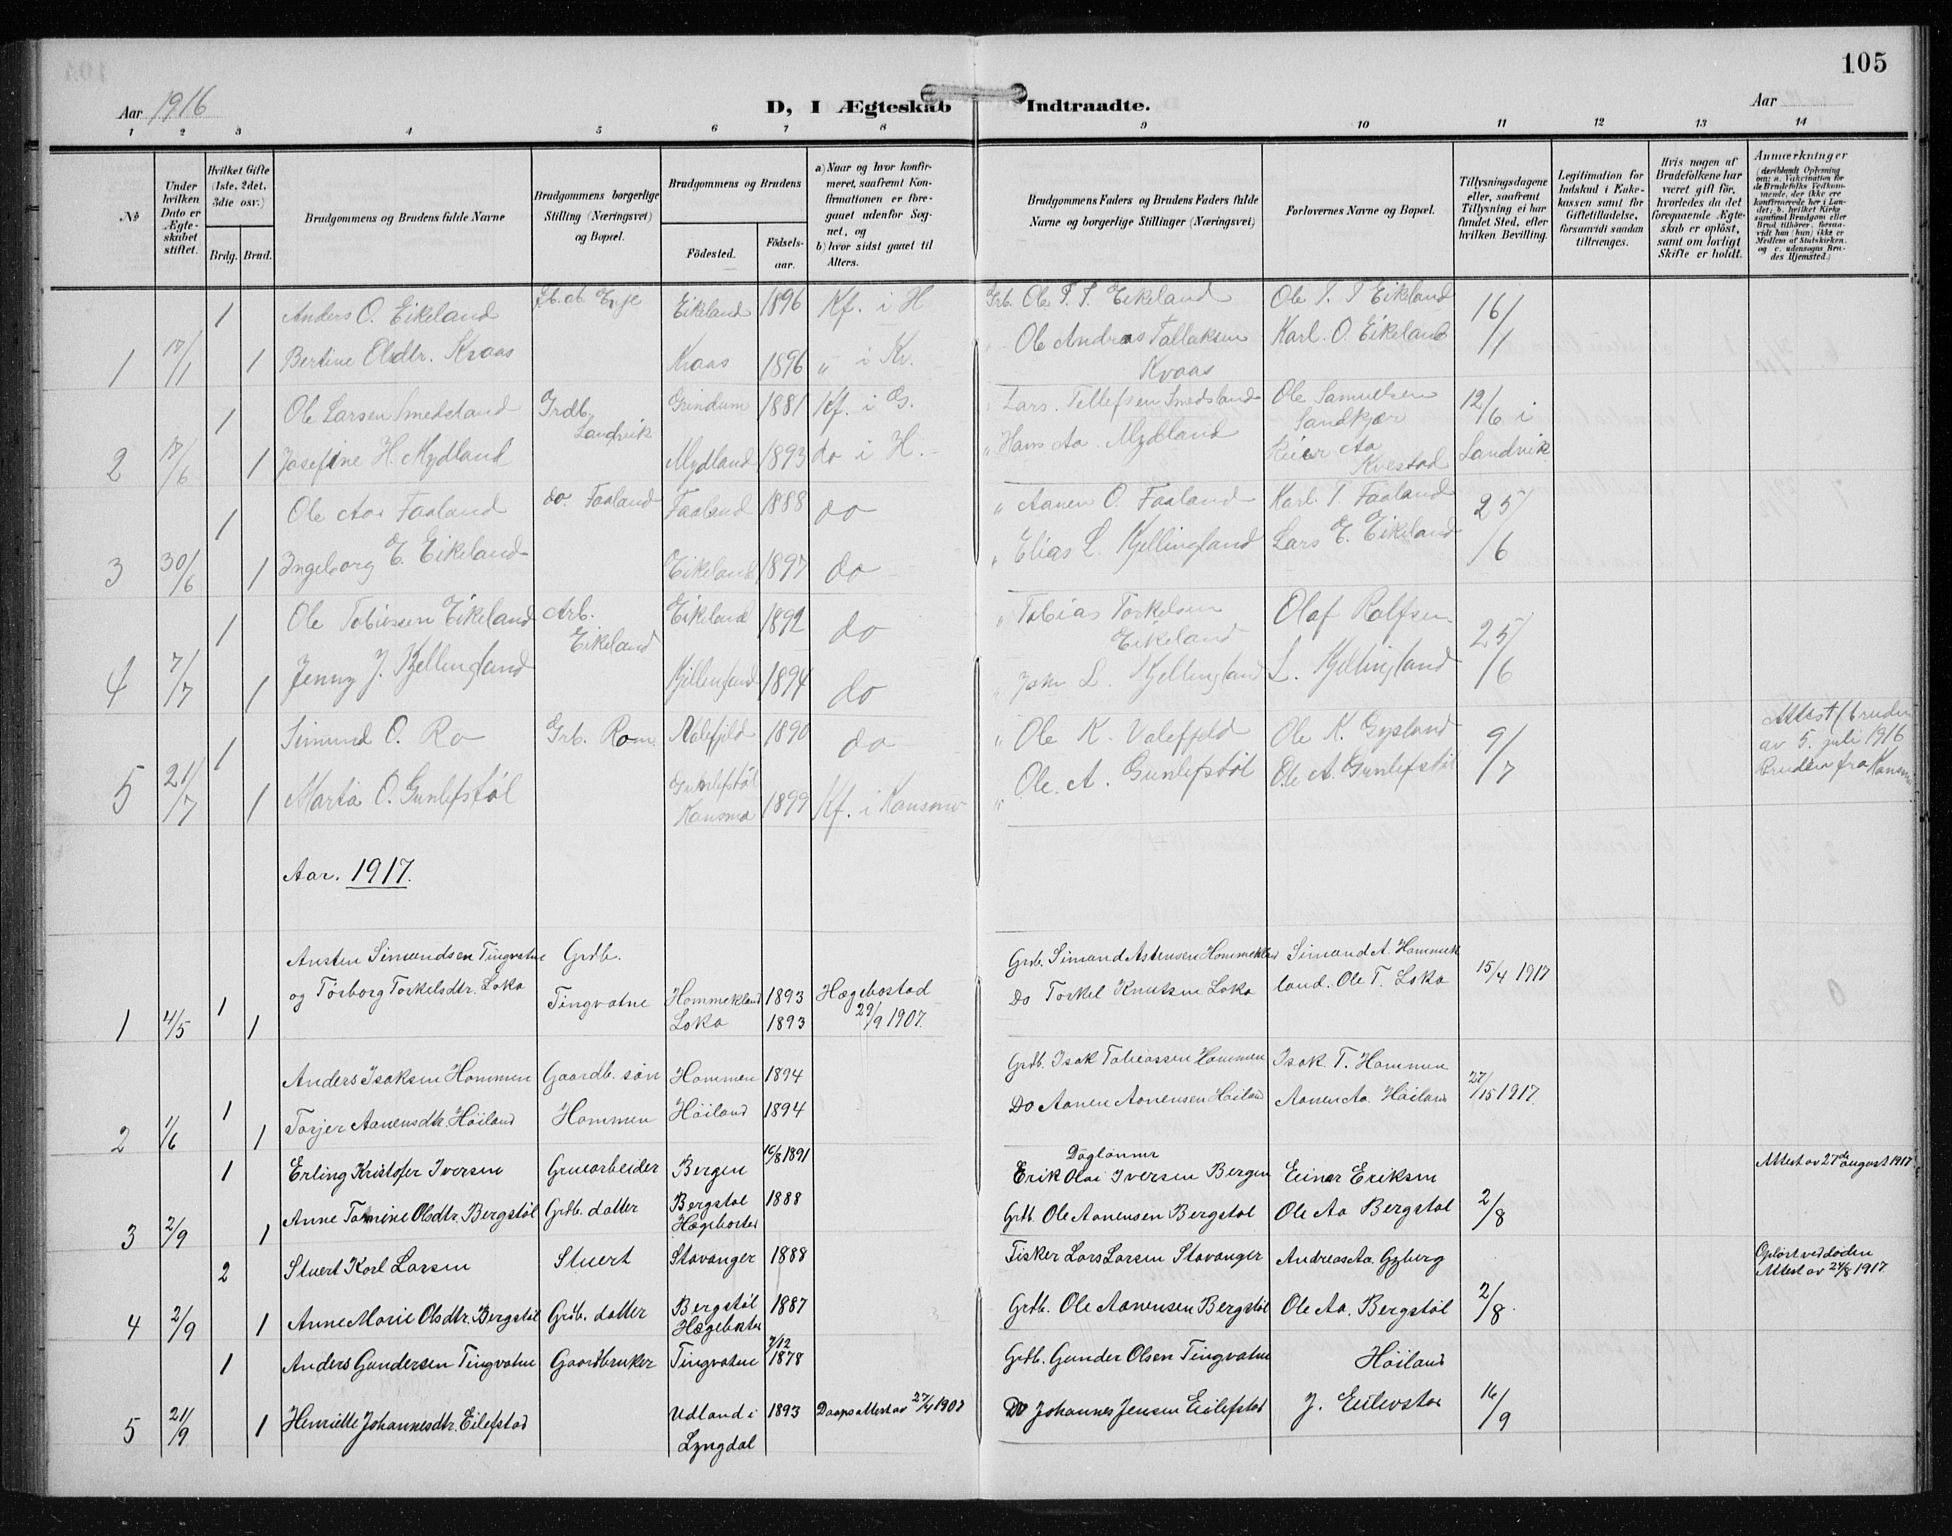 105
Aar 1916
D, I Ægteskab Indtraadte.
Aar
1 2 3 4 5 6 7 8 9 10 11 12 13 14
No
Under hvilken Dato er Ægteskabet stiftet.
Hvilket Gifte (1ste, 2det, 3die osv.)
Brdg. Brud.
Brudgommens og Brudens fulde Navne
Brudgommens borgerlige Stilling (Næringsvei) og Bopæl.
Brudgommens og Brudens
Fødested. Fødselsaar.
a) Naar og hvor konfirmeret, saafremt Konfirmationen er foregaaet udenfor Sognet, og
b) hvor sidst gaaet til Alters.
Brudgommens Faders og Brudens Faders fulde Navne og borgerlige Stillinger (Næringsvei)
Forlovernes Navne og Bopæl.
Tillysningsdagene eller, saafremt Tillysning ei har fundet Sted, efter hvilken Bevilling.
Legitimation for Indskud i Enkekassen samt for Giftetilladelse, forsaavidt saadan tiltrænges.
Hvis nogen af Brudefolkene har været gift før, hvorledes da det foregaaende Ægteskab er opløst, samt om lovligt Skifte er holdt.
Anmærkninger
1 Anders O. Eikeland Eikeland 1896 Kf. i H Ole T. T. Eikeland Ole T. T Eikeland 16/1
1 Bertine Olsdtr. Kvaas Kvaas 1896 " i Kv. Ole Andreas Tallaksen Kvaas Karl. O. Eikeland
1 Ole Larsen Smedsland Grdb. Landvik Grindum 1881 Kf. i G. Lars Tellefsen Smedsland Ole Samuelsen Sandkjær 12/6 i Landvik
2 /6 1 Josefine H. Mydland Mydland 1893 do i H. " Hans Aa. Mydland Aa Kvestad
1 Ole Aa. Faaland do. Faaland Faaland 1888 do " Aanen O. Faaland Karl. T. Faaland 25/6
3 30/6 1 Ingeborg E. Eikeland Eikeland 1897 do " Elias L. Kjellingland Lars E. Eikeland
1 Ole Tobiassen Eikeland Arb. Eikeland Eikeland 1892 do " Tobias Torkelsen Eikeland Olaf Rolfsen 25/6
4 7/7 1 Jenny J. Kjellingland Kjellingland 1894 do L. Kjellingland L. Kjellingland
1 Simund O. Ro Grb. Rom 1890 do " Ole K. Valefjeld Ole K. Gysland 9/7 Attest f. bruden av 5. juli 1916
5 21/7 1 Marta O. Gunlefstøl Gunlefstøl Konsmo 1899 Kf. i Konsmo " Ole. A. Gunlefstøl Ole A. Gunlefstøl Bruden fra
Aar. 1917.
Austen Simundsen Tingvatne Grdb. Grdb. Simand Astensen Hommekland Simand A. Hommekland. 15/4 1917
1 4/5 1 1 og Torborg Torkelsdtr. Loka Tingvatne Hommekland 1893 Loka 1893 Hægebostad 29/9 1907. Do Torkel Knutsen Loka Ole T. Loka
Anders Isaksen Hommen Gaardb. søn Hommen 1894 Grdb. Isak Tobiassen Hommen Isak T. Hommen 27/5 1917.
2 1/6 1 1 Torjer Aanensdtr. Høiland Hommen Høiland 1894 Do Aanen Aanensen Høiland Aanen Aa. Høiland
1 Erling Kristofer Iversen Gruearbeider Bergen /8 1891 Døglønner Erik Olai Iversen Bergen Einar Eriksen 2/8 Attest av 27de august 1917
3 2/9 1 Anne Tomine Olsdtr. Bergstøl Grdb. datter Bergstøl Hægebostad 1888 Grdb. Ole Aanensen Bergstøl Ole Aa Bergstøl
2 Stuert Karl Larsen Stuert Stavanger 1888 Fisker Lars Larsen Stavanger Andreas Aa. Gyberg 2/8. Opløst ved døden Attest av 24/8 1917.
4 2/9 1 Anne Marie Olsdtr. Bergstøl Grdb. datter Bergstøl Hægebostad 1887 Grdb. Ole Aanensen Bergstøl Ole Aa. Bergstøl
1 Anders Gundersen Tingvatne Gaardbruker Tingvatne 7/12 1878 Grdb. Gunder Olsen Tingvatne Høiland 16/9
5 21/9 1 Henriette Johannesdtr. Eilefstad Udland i Lyngdal 1893 Daapsattest av 27/4 Do Johannes Jensen Eilefstad J. Eilevstad